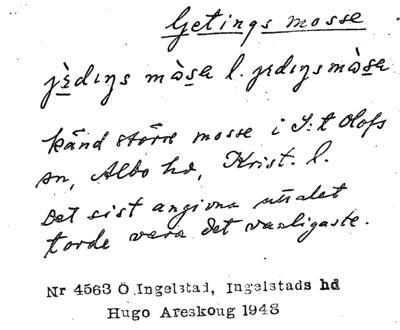 Getings mosse
jèdıŋs mòsa l. jedıŋsmòsa
känd större mosse i S:t Olofs
sn, Albo hd, Krist. l.
Det sist angivna uttalet
torde vara det vanligaste.
Nr 4563 Ö.Ingelstad, Ingelstads hd
Hugo Areskoug 1948